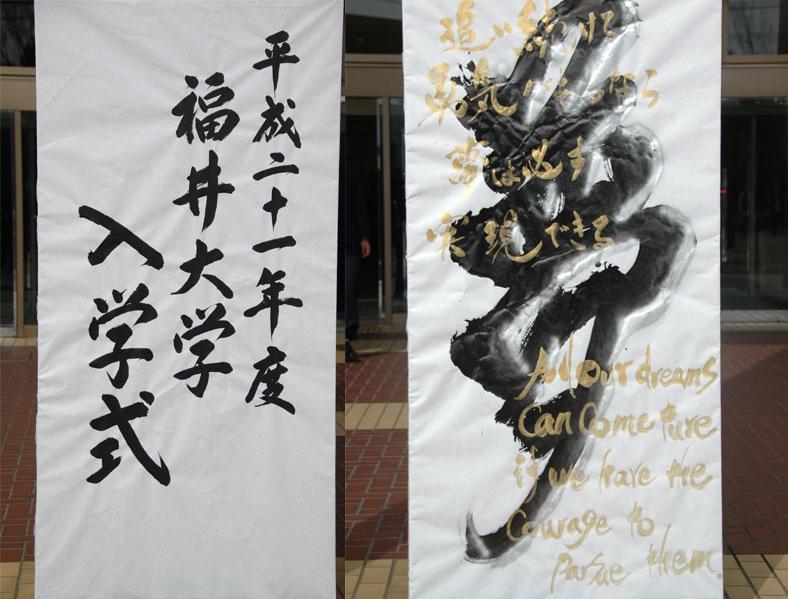 平成二十一年度
福井大学
入学式
夢
追い続ける
勇気があるなら
夢は必ず
実現できる
All our dreams
Can Come ture
if we have the
Courage to
Parsue them.